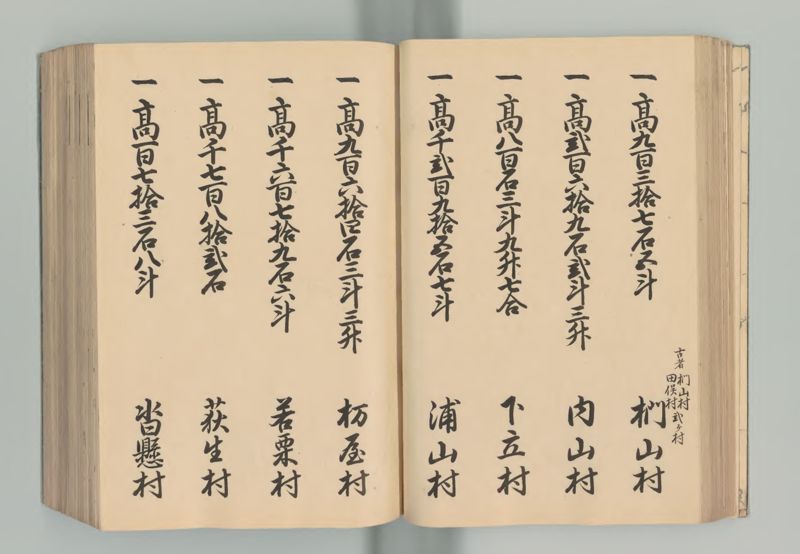 一 髙九百三拾七石五斗
古者 椚山村 田俣村 弐ヶ村
椚山村
一 髙弐百六拾九石弐斗三升
内山村
一 髙八百石三斗九升七合
下立村
一 髙千弐百九拾五石七斗
浦山村
一 髙九百六拾四石三斗三升
栃屋村
一 髙千六百七拾九石六斗
若栗村
一 髙千七百八拾弐石
荻生村
一 髙一百七拾三石八斗
沓懸村